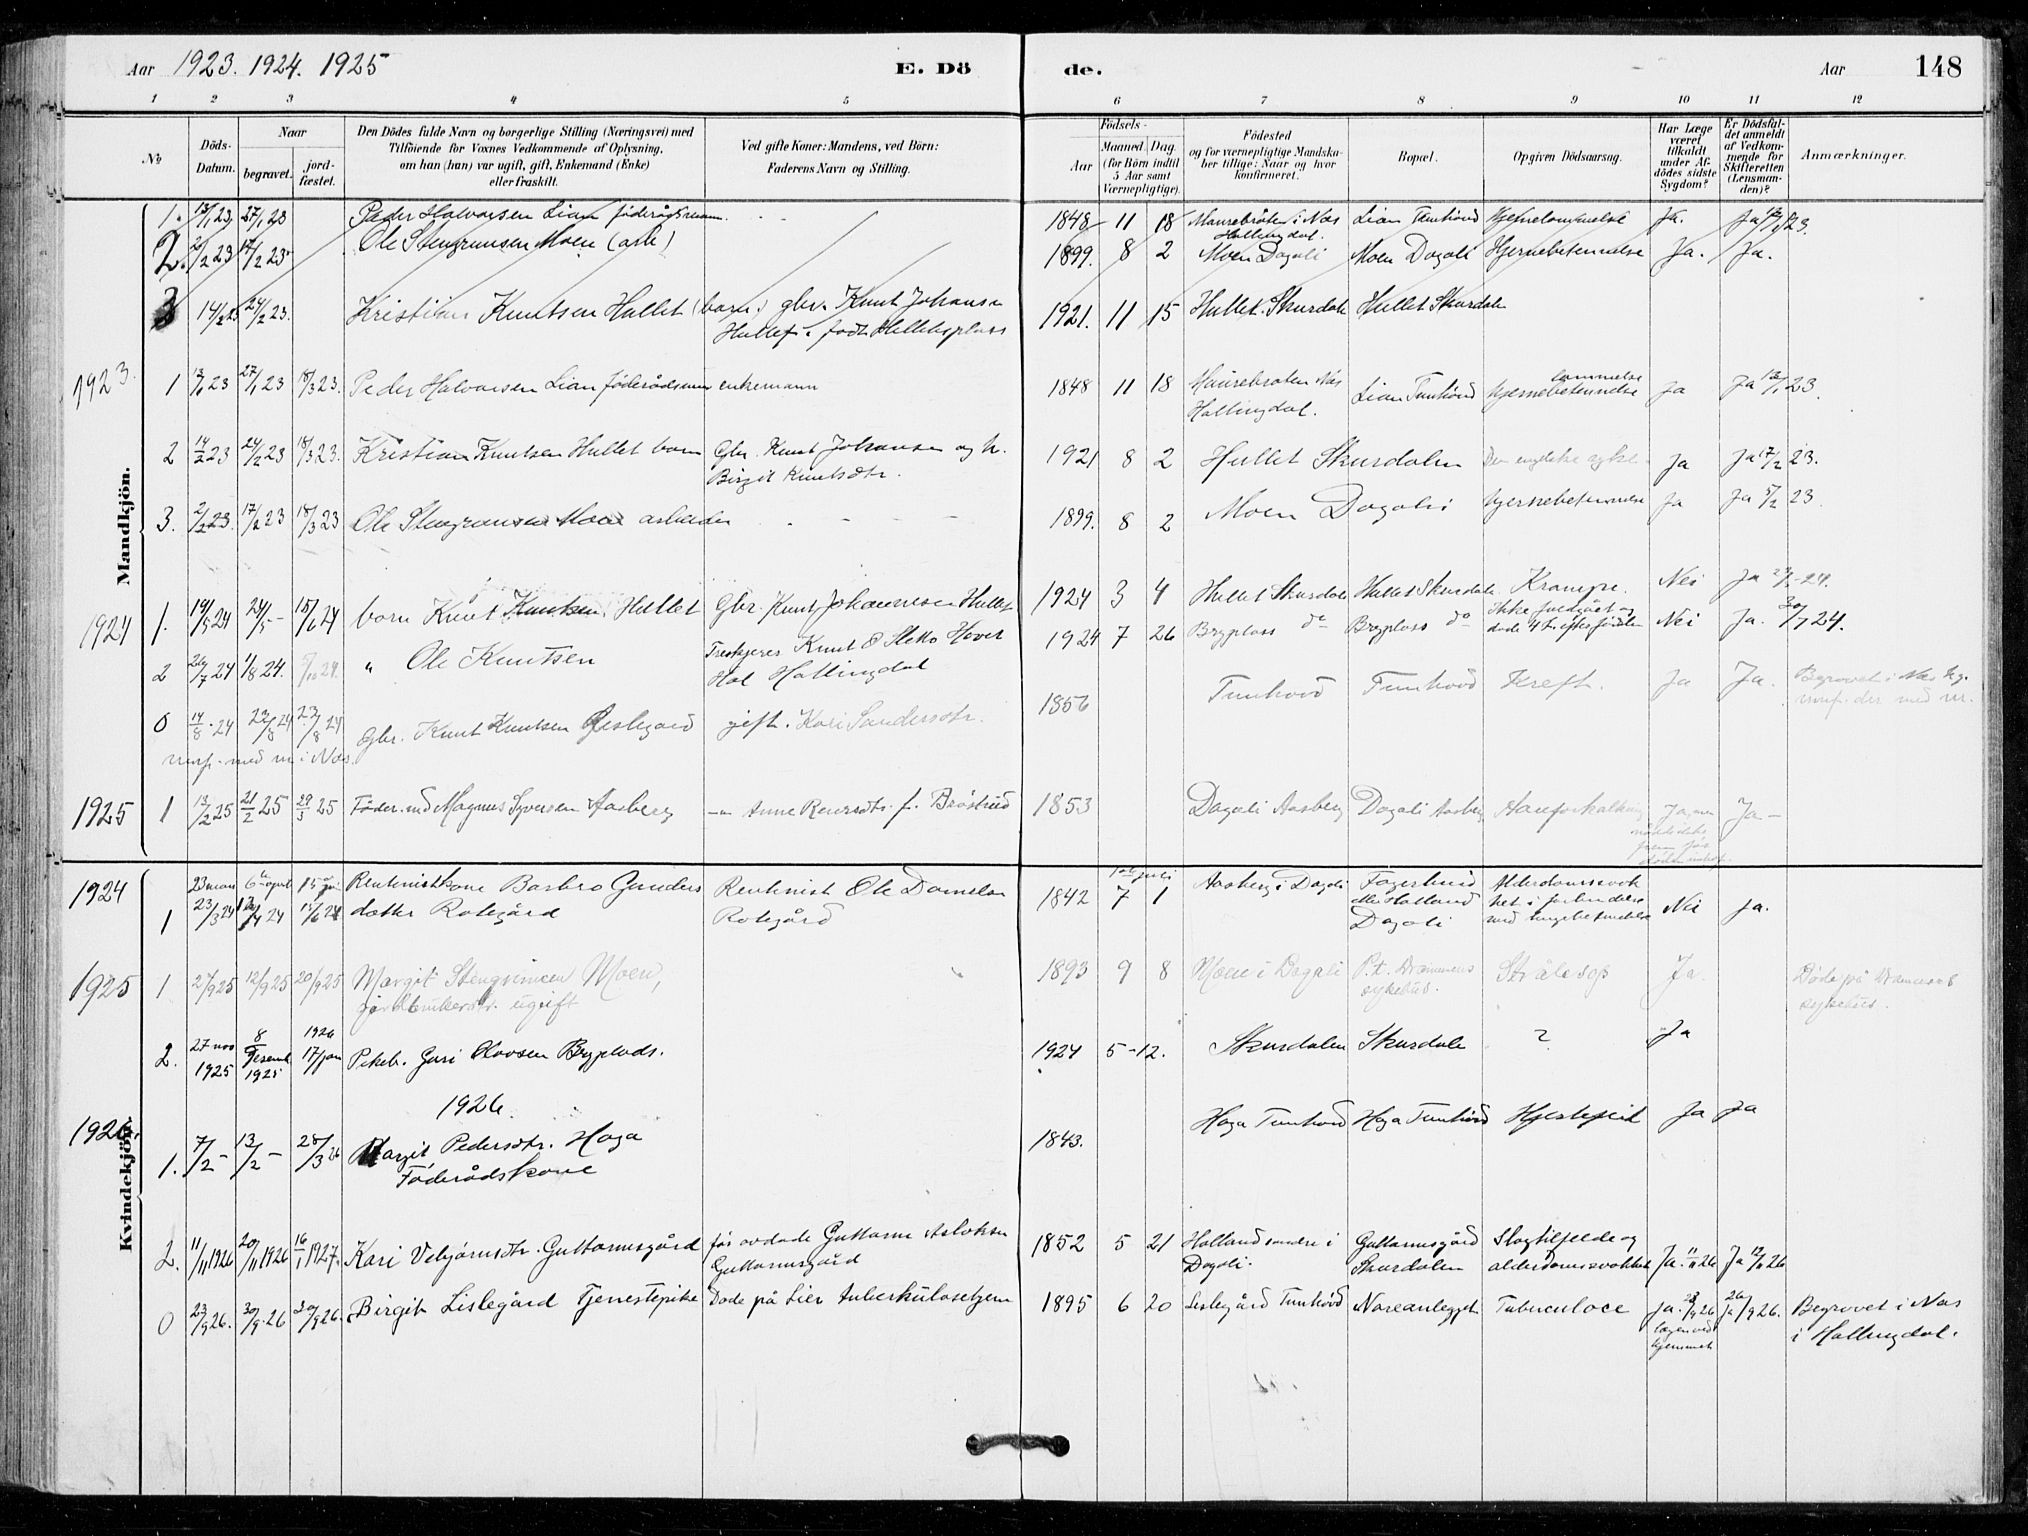 Aar 1923. 1924. 1925 E. Dö
de. Aar 148
1 2 3 4 5 6 7 8 9 10 11 12
No
Döds-
Datum.
Naar
begravet.
jord-
fæstet.
Den Dödes fulde Navn og borgerlige Stilling (Næringsvei) med
Tilföiende for Voxnes Vedkommende af Oplysning,
om han (hun) var ugift, gift, Enkemand (Enke)
eller fraskilt.
Ved gifte Koner: Mandens, ved Börn:
Faderens Navn og Stilling.
Födsels-
Aar
Maaned. Dag.
(for Börn indtil
5 Aar samt
Værnepligtige).
Födested
og for værnepligtige Mandska-
ber tillige: Naar og hvor
konfirmeret.
Bopæl.
Opgiven Dödsaarsag.
Har Læge
været
tilkaldt
under Af-
dödes sidste
Sygdom?
Er Dödsfal-
det anmeldt
af Vedkom-
mende for
Skifteretten
(Lensman-
den)?
Anmærkninger.
Mandkjön.
1. 13/1 23 27/1 23 Peder Halvorsen Lian föderådsmann. 1848 11 18 Maurebråten i Nes Lian Tunhövd Ja. Ja 13/1 23.
Hallingdal.
2. 2/2 23 17/2 23 Ole Stengrimsen Moen (arb) 1899. 8 2 Moen Dagali Moen Dagali Hjernebetennelse Ja. Ja.
3 14/2 23 24/2 23. Kristian Knutsen Hullet (barn) gbr. Knut Johansen 1921. 11 15 Hullet. Skurdale Hullet Skurdale
Hullet. født
1923.
1 13/1 23 27/1 23 18/3 23. Peder Halvorsen Lian föderådsmann enkemann 1848 11 18 Maurebråten Nes Lian Tunhövd Hjernebetennelse Ja Ja 13/1 23.
Hallingdal.
2 14/2 23 24/2 23 18/3 23. Kristian Knutsen Hullet barn Gbr. Knut Johansen og h. 1921 8 2 Hullet Skurdalen Den engelske syke Ja Ja 17/2 23.
Birgit Knutsdtr.
3. 2/2 23. 17/2 23 18/3 23 Ole Stengrimsen Moen arbeider 1899. 8 2 Moen Dagali Hjernebetennelse Ja Ja 5/2 23.
1924 1. 19/5 24 24/5 - 15/6 24 barn Knut Knutsen Hullet Gbr. Knut Johannesen Hullet 1924 3 4 Hullet Skurdale Hullet Skurdale. Krampe. Nei Ja
2 26/7 24 1/8 24. 24. " Ole Knutsen Knut O Sleko Hover 1924 7 26 Brypláss do Bryplass do Ikke Nei Ja. 30/7 24.
Hol Hallingdal
0 14/8 24 23/8 24 23/8 24 Gbr. Knut Knutsen gift. Kari Sandersdtr. 1856 Tunhövd Tunhövd Kreft. Ja Ja. Begravet i Nes
med m i Nes.
1925 1 13/2 25 21/2 25 29/3 25 Föder.md Magnus Syversen Aasberg Anne f. Bröstrud 1853 Dagali Aasberg Dagali Aasberg Aareforkalkning Ja -
Kvindekjön.
1924 1 23 mars 6te april 15 juni Rentenistkone Barbro Gunders Rentenist Ole Danielsen 1842 7 1 Aasberg i Dagali Alderdomssvak
23/3 24 24 15/6 24 datter Rotegård Rotegård Dagali het i forbindelse Nei Ja.
1925 1 2/9 25 12/9 25 20/9 25 Margit Stengrimsen Moen, 1893 9 8 Moen i Dagali P.t. Drammens Ja. Döde på Drammens
ugift sykehus. sykehus.
2. 27 nov 1925 8 desemb. 1925 1926 17/jan Pikeb. Guri Olavsen Bryplads. 1924 5-12. Skurdalen Skurdale ? Ja
1926.
1926. 1. 7/2 - 13/2 - 28/3 26 Margit Pedersdtr. Haga 1843. Haga Tunhovd Haga Tunhövd Hjertefeil Ja Ja
Föderådskone
2. 11/11 1926 20/11 1926 16/1 1927. Kari Vebjörnsdtr. Guttormsgård for avdøde Guttorm Asloksen 1852 5 21 Halland søndre i Guttormsgård Slagtilfelde og Ja. 11/11 26 Ja 12/11 26
Guttormsgård Dagali. Skurdalen alderdomssvakhet
0 23/9 26. 30/9 26 30/9 26. Birgit Lislegård Tjenestepike Døde på Lier tuberkulosehjem 1895 6 20 Lislegård Tunhövd Noreanlegget Tuberculose Ja. Ja 26/9 26. Begravet i Nes
lægen ved
hjemmet
i Hallingdal.